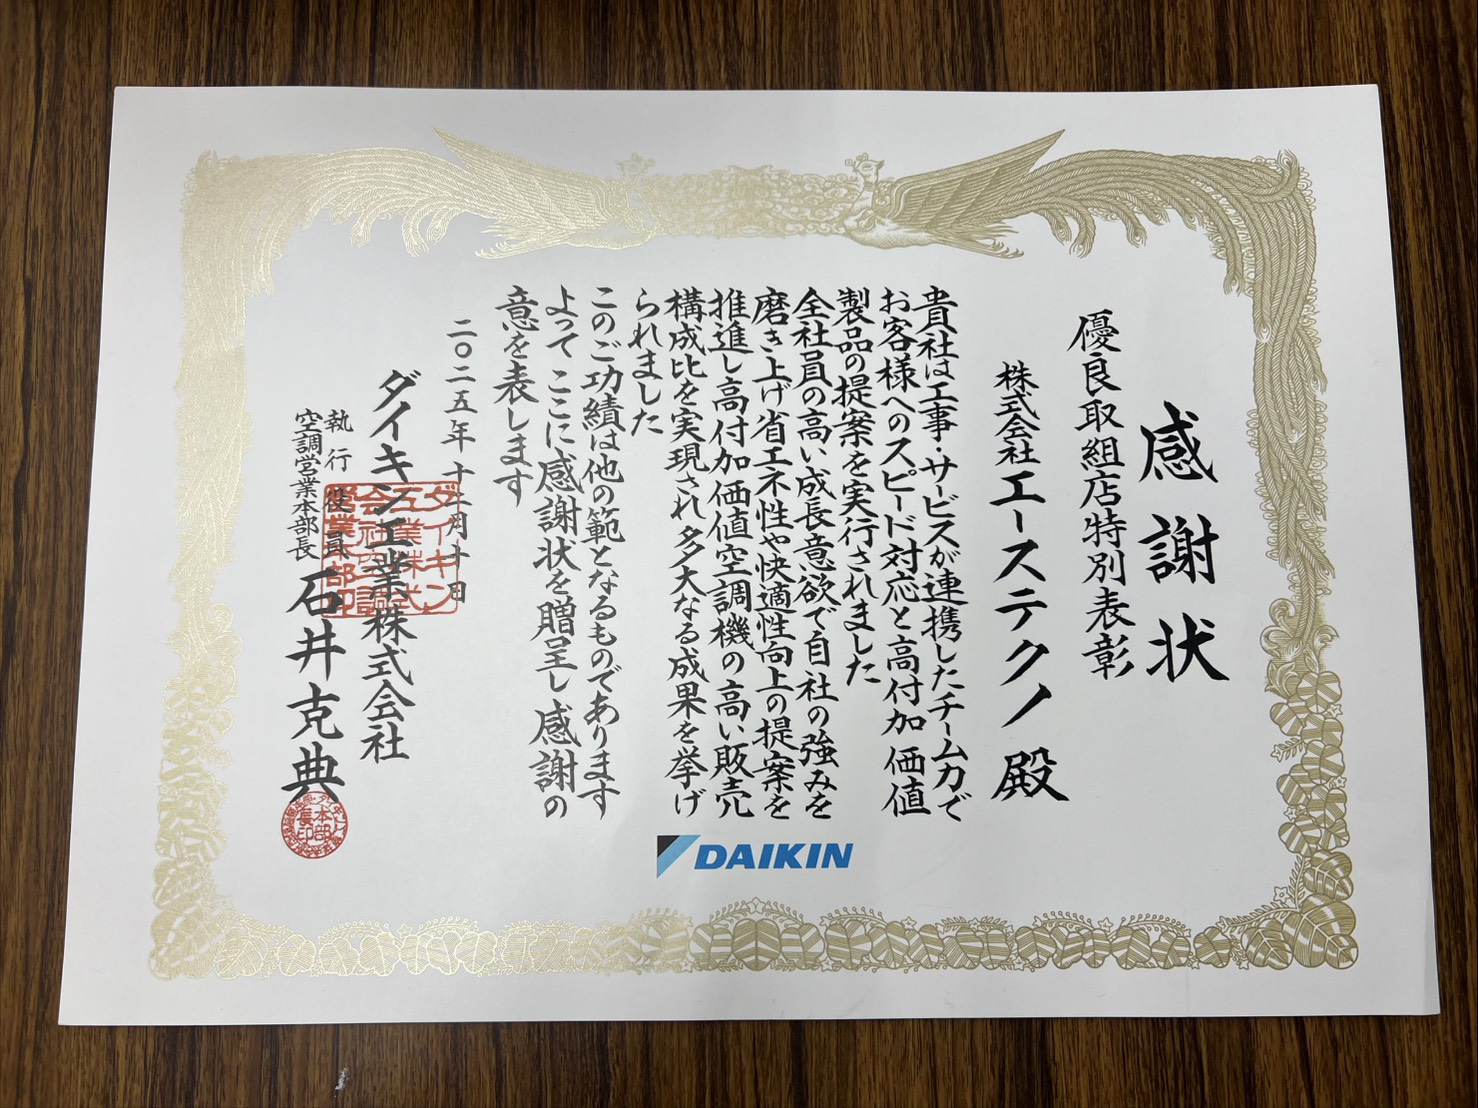 感謝状
優良取組店特別表彰
株式会社エーステクノ殿
貴社は工事・サービスが連携したチーム力で
お客様へのスピード対応と高付加価値
製品の提案を実行されました
全社員の高い成長意欲で自社の強みを
磨き上げ省エネ性や快適性向上の提案を
推進し高付加価値空調機の高い販売
構成比を実現され多大なる成果を挙げ
られました
このご功績は他の範となるものであります
よってここに感謝状を贈呈し感謝の
意を表します
二〇二五年十二月十日
ダイキン工業株式会社
執行役員
空調営業本部長 石井克典
DAIKIN